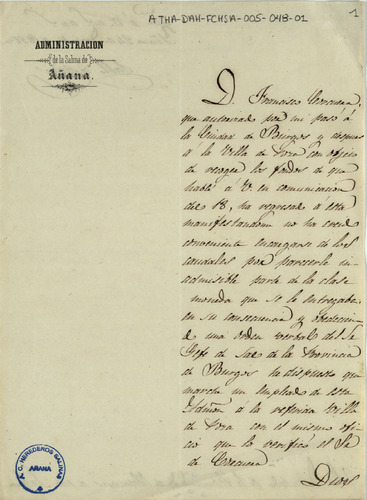 ATHA-DAH-FCHSA-005-048-01
1
ADMINISTRACION
de la Salina de
Añana.
D. Francisco
que autorizado por mi pasó á
la Ciudad de Burgos y despues
á la Villa de Poza con objeto
de recoger los fondos de que
hablé á V. en comunicacion
del 18, ha regresado á esta
manifestandome no ha creido
conveniente encargarse de los
caudales por parecerle in-
admisible parte de la clase
moneda que se le entregaba:
en su consecuencia y obedecien
do una orden verbal del Sr
Gefe de Sales de la Provincia
de Burgos ha dispuesto que
marche un empleado de esta
á la referida Villa
de Poza con el mismo obje
que lo verificó el Sr
de
Dios
A.C. HEREDEROS SALINAS
AÑANA